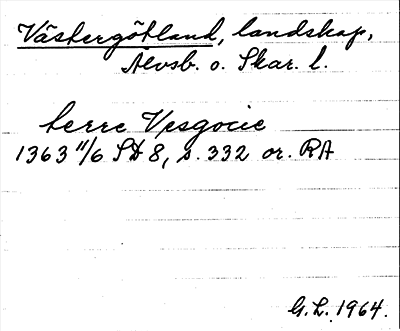 Västergötland, landskap,
Älvsb. o. Skar. l.
terre Vesgocie
1363 11/6 SD 8, s. 332 or. RA
G.L. 1964.